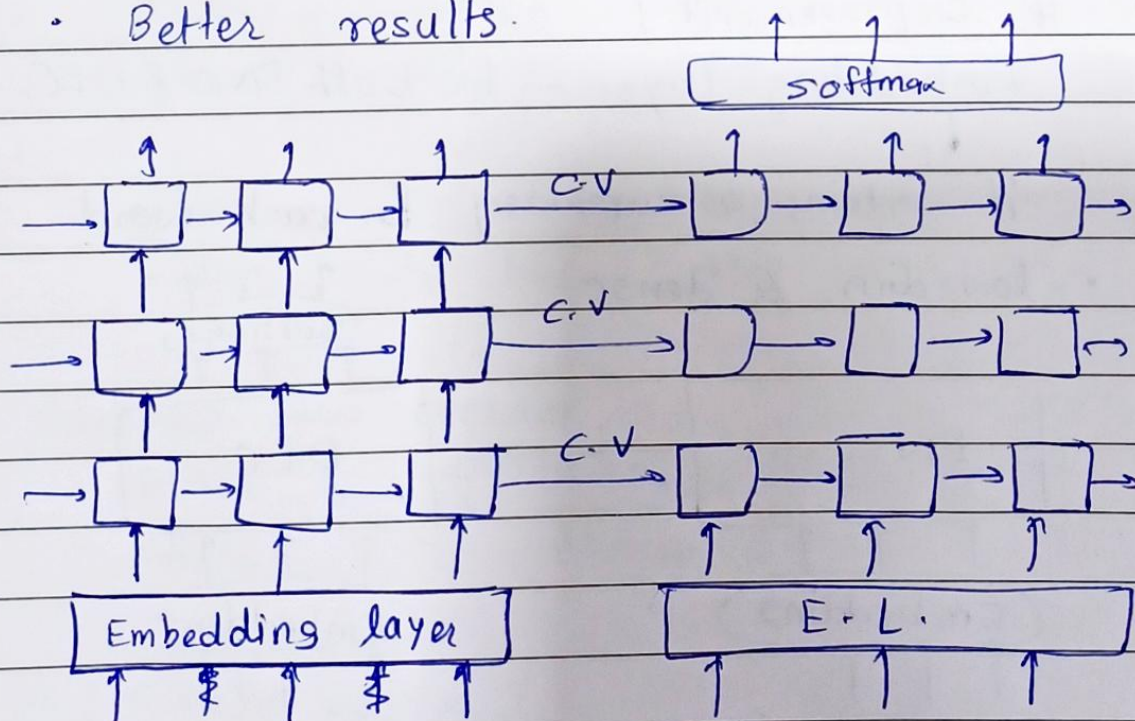 · Better results.
softmax
C.V
C.V
C.V
Embedding layer
E. L.